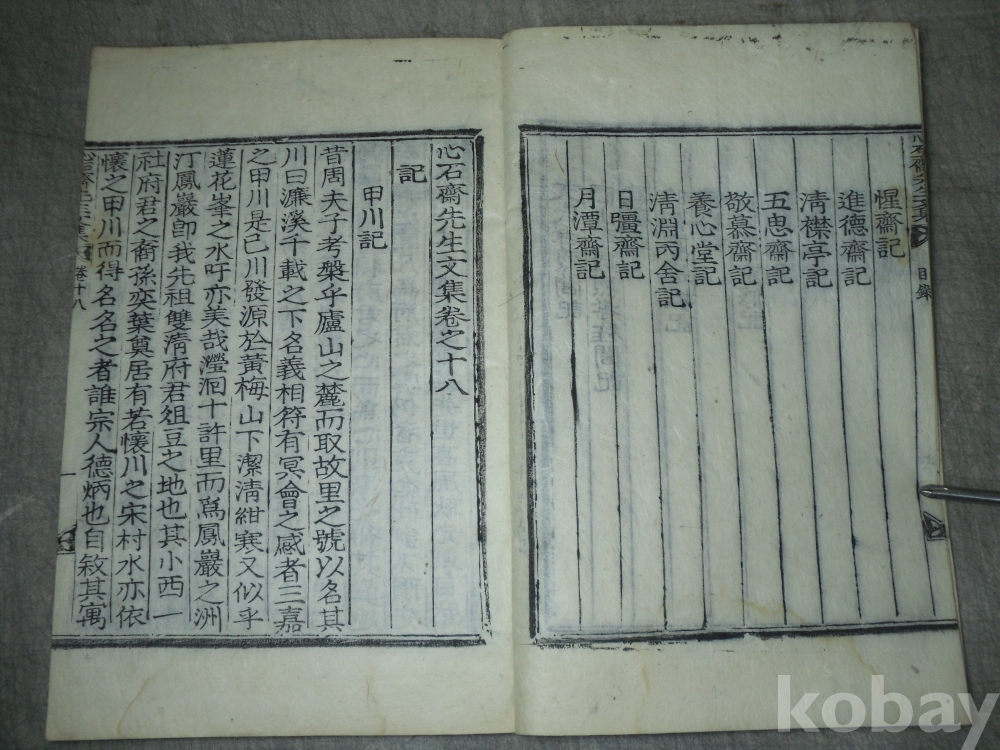 惺齋記
進德齋記
淸襟亭記
五忠齋記
敬慕齋記
養心堂記
淸淵丙舍記
日彊齋記
月潭齋記
目錄
心石齋先生文集卷之十八
記
甲川記
昔周夫子考槃乎廬山之麓而取故里之號以名其
川曰濂溪千載之下名義相符有冥會之感者三嘉
之甲川是已川發源於黃梅山下潔淸紺寒又似乎
蓮花峯之水吁亦美哉瀅洄十許里而爲鳳巖之洲
汀鳳巖卽我先祖雙淸府君俎豆之地也其小西一
社府君之裔孫奕葉奠居有若懷川之宋村水亦依
懷之甲川而得名名之者誰宗人德炳也自敘其寓
卷十八
一
kobay